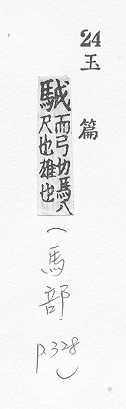 24 玉篇
駥 而弓切馬八
尺也雄也
(馬部 p.328)